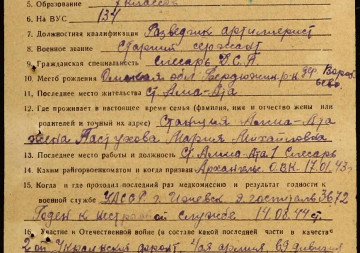 5. Образование 7 классов
6. На ВУС 134
7. Должностная квалификация Разведчик артиллерист
8. Военное звание Старший сержант
9. Гражданская специальность Слесарь
10. Место рождения обл. Бердюжин р-н
11. Последнее место жительства Ст. Алма-Ата
12. Где проживает в настоящее время семья (фамилия, имя и отчество жены или
родителей и точный их адрес) Станция Алма-Ата
жена Пастухова Мария Михайловна
13. Последнее место работы и должность Ст. Алма Ата 1 Слесарь
14. Каким райгорвоенкоматом и когда призван РВК 17.01.43 г.
15. Когда и где проходил последний раз медкомиссию и результат годности к
военной службе УАССР г. Ижевск э/госпиталь 3672
Годен к строевой службе 14.08.44 г.
16. Участие в Отечественной войне (в составе какой последней части в качестве
2 ой Украинский фронт армия 69 дивизия